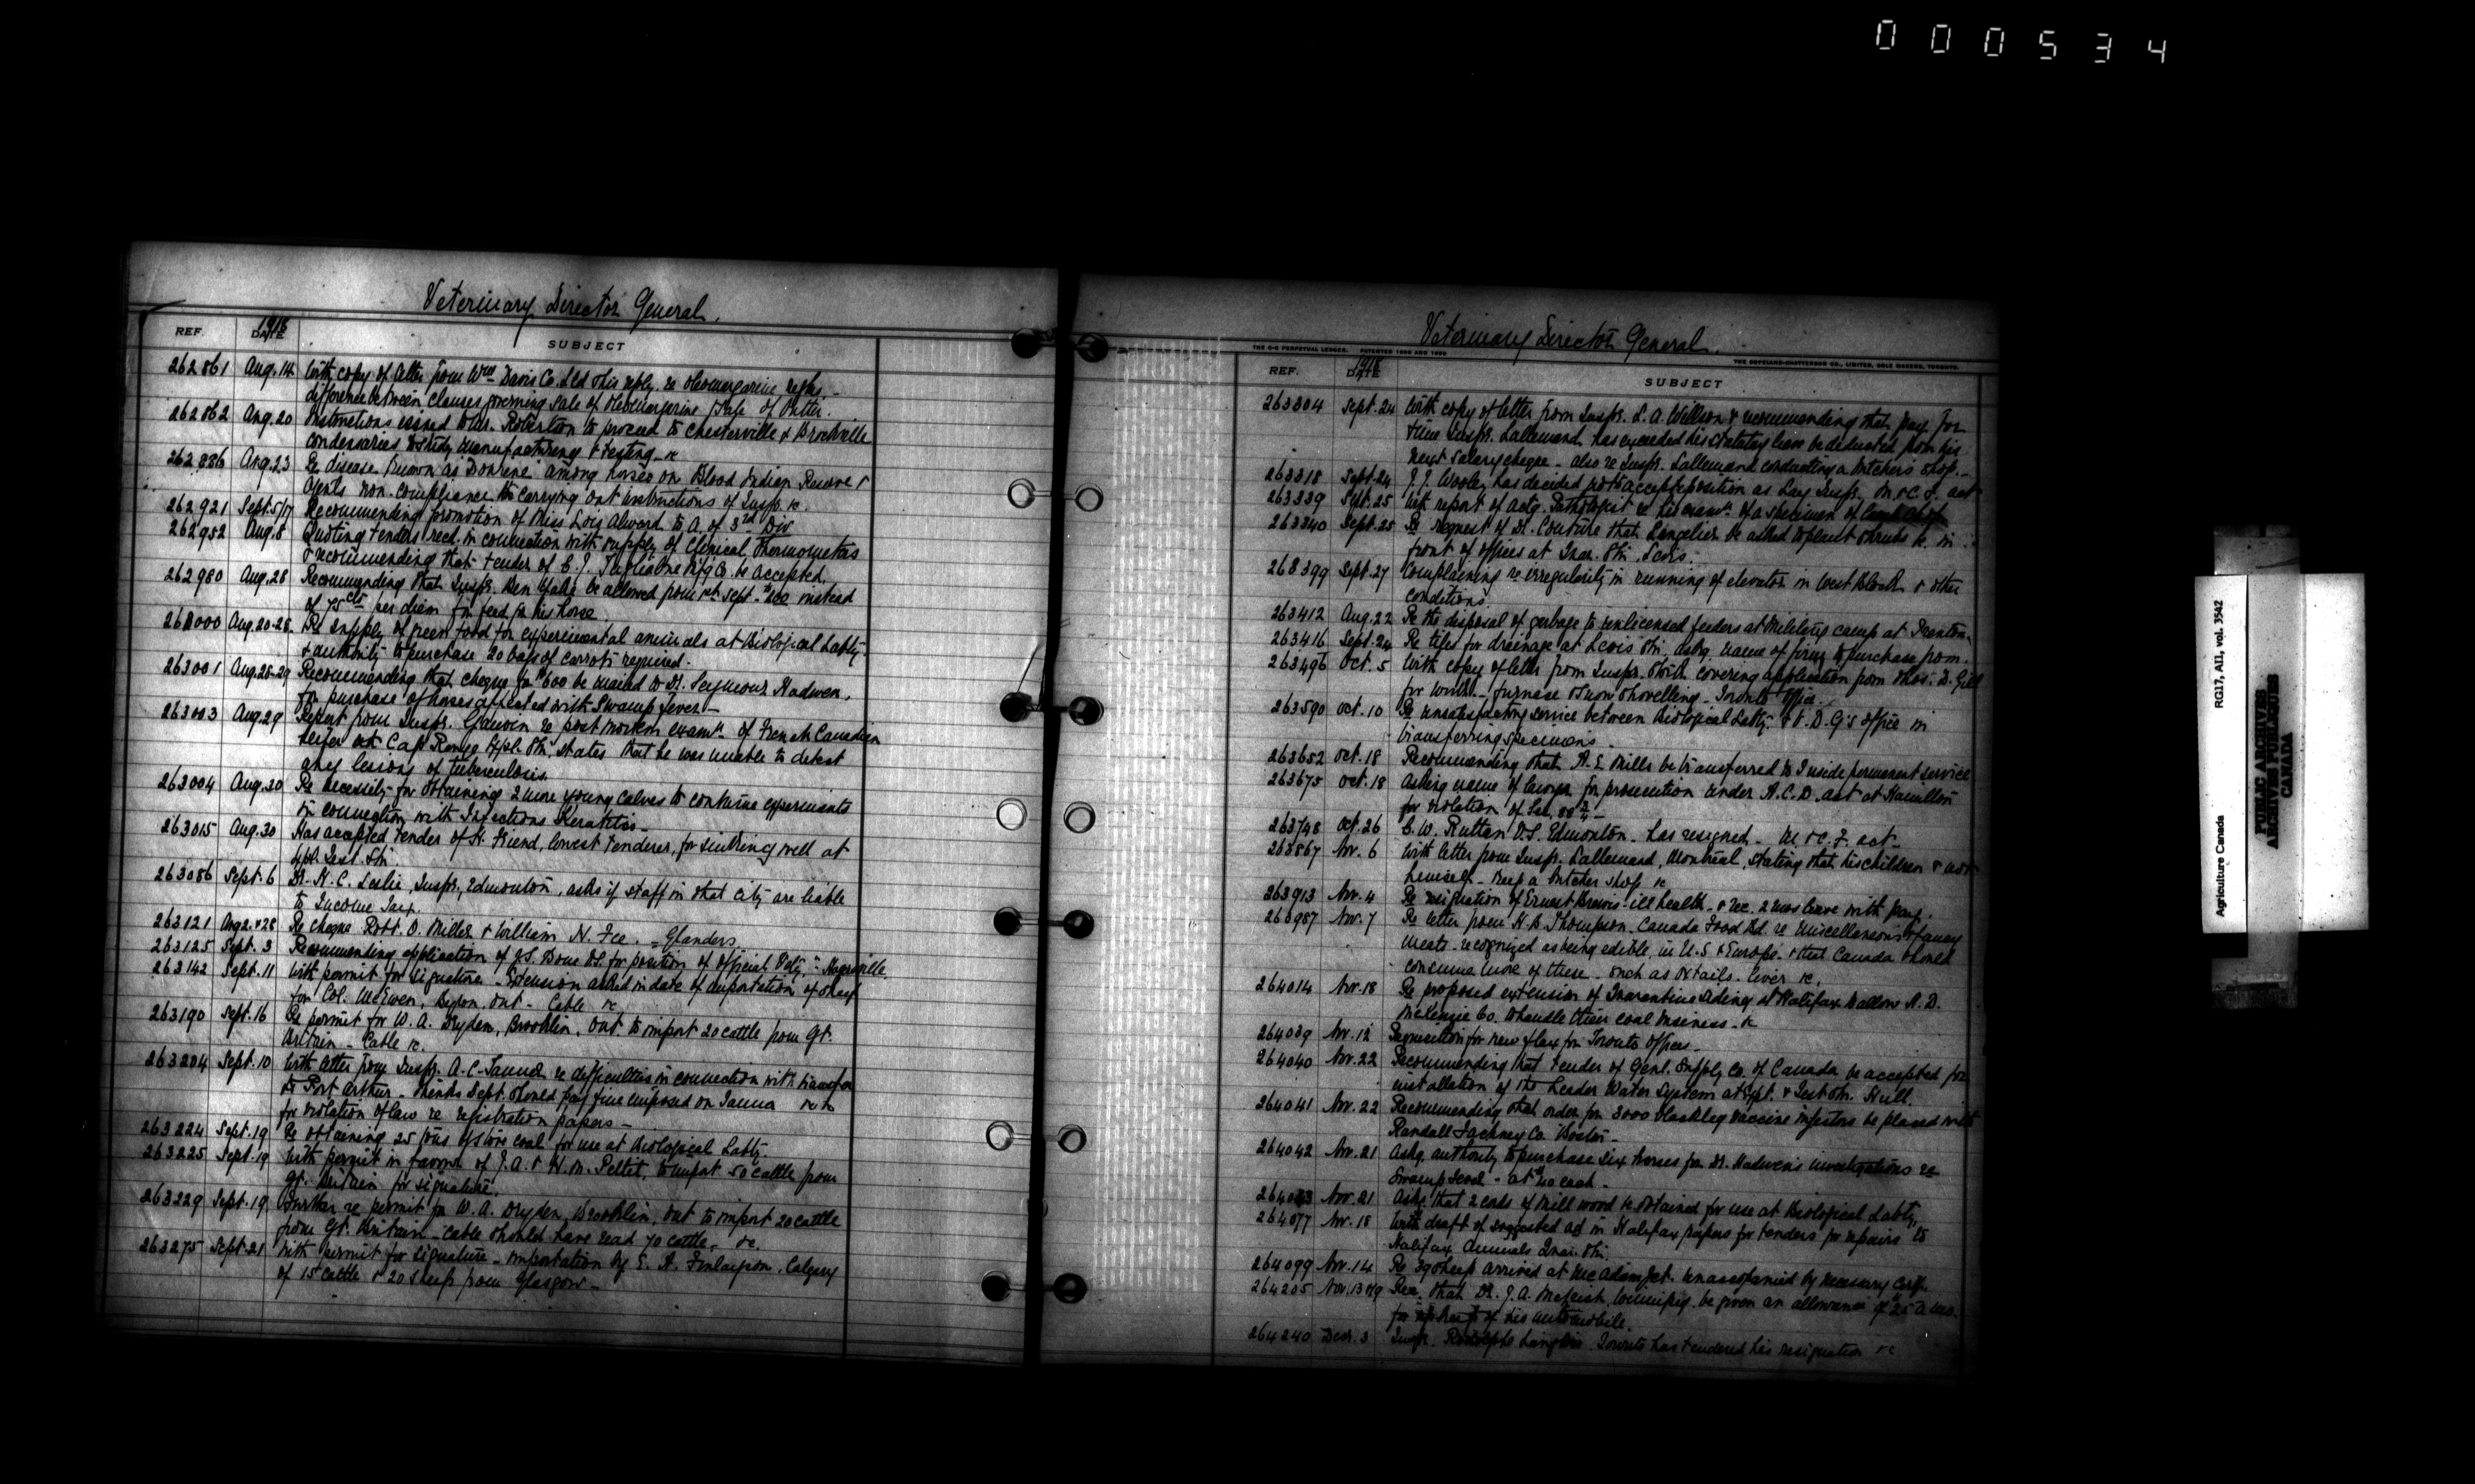 000534
Veterinary Director General.
REF. 1918 DATE SUBJECT
262861 Aug. 14 With copy of letter from Wm Davis Co. Ltd & his reply, re Oleomargarine regns. -
difference between clauses governing sale of Oleomargarine & sale of Butter.
262862 Aug. 20 Instructions issued to Mr. Robertson to proceed to Chesterville & Brockville
condensaries to study manufacturing & testing - &c
262886 Aug. 23 Re disease known as "Dourine" among horses on Blood Indian Reserve &
Agents non-compliance to carrying out instructions of Insp. &c.
262921 Sept. 5/17 Recommending promotion of Miss Lois Alward to A. of 3rd Div
262952 Aug. 8 Quoting tenders recd. in connection with supply of Clinical Thermometers
& recommending that tender of be accepted.
262980 Aug. 28 Recommending that Inspr. be allowed from 1st Sept. instead
of 75cts per diem for feed for his horse
263000 Aug. 20-28 Re supply of green food for experimental animals at Biological Labty.
& authority to purchase 20 bags of carrots required.
263001 Aug. 28-29 Recommending that cheque for $600 be mailed to Dr. Seymour Hadwen,
for purchase of horses affected with Swamp Fever -
263003 Aug. 29 Report from Inspr. re post mortem examn. of French Canadian
heifer at Cap Rouge Exptl. Stn. states that he was unable to detect
any lesions of tuberculosis.
263004 Aug. 30 Re necessity for obtaining 2 more young calves to continue experiments
in connection with Infectious Keratitis -
263015 Aug. 30 Has accepted tender of H. Friend, lowest tenderer, for sinking well at
Exptl. Test. Stn.
263086 Sept. 6 Dr. H. C. Leslie, Inspr., Edmonton, asks if staff in that city are liable
to Income Tax.
263121 Aug 2. & 28 Re cheque Robt. O. Miller & William N. Fee. - Glanders
263125 Sept. 3 Recommending application of J.S. Bone V.S. for position of Official Vety. - Hagersville.
263142 Sept. 11 With permit for signature - Extension asked in date of importation of sheep
for Col. McEwen, Byron, Ont - Cable &c
263190 Sept. 16 Re permit for W. A. Dryden, Brooklin, Ont. to import 20 cattle from Gt.
Britain - Cable &c.
263204 Sept. 10 With letter from Inspr. A. C. Tanner re difficulties in connection with transfer
to Port Arthur - thinks Dept. should pay fine imposed on Tanner &c
for violation of law re registration papers -
263224 Sept. 19 Re obtaining 25 tons of stove coal for use at Biological Labty.
263225 Sept. 19 With permit in favour of J. A. & H. M. Pettit, to import 50 cattle from
Gt. Britain for signature.
263229 Sept. 19 Further re permit for W. A. Dryden, Brooklin, Ont to import 20 cattle
from Gt. Britain - Cable should have read 70 cattle, &c.
263275 Sept. 21 With permit for signature - importation by E. A. Finlayson, Calgary
of 15 cattle & 20 sheep from Glasgow -
Veterinary Director General.
THE C-C PERPETUAL LEDGER. PATENTED 1896 AND 1899 THE COPELAND-CHATTERSON CO., LIMITED, SOLE MAKERS, TORONTO.
REF. 1918 DATE SUBJECT
263304 Sept. 24 With copy of letter from Inspr. L. A. Willson & recommending that pay for
time Inspr. Lallemand has exceeded his statutory leave be deducted from his
next salary cheque - also re Inspr. Lallemand conducting a butcher's shop. -
263318 Sept. 24 J. J. Wooley has decided not to accept position as Lay Inspr. M. & C. F. act
263339 Sept. 25 With report of actg. Pathologist re his examn. of a specimen of
263340 Sept. 25 Re request of Dr. Couture that Langelier be asked to plant shrubs &c. in
front of offices at Quar. Stn. Levis.
263399 Sept. 27 Complaining re irregularity in running of elevator in West Block & other
conditions.
263412 Aug. 22 Re the disposal of garbage to unlicensed feeders at Military camp at Trenton.
263416 Sept. 24 Re tiles for drainage at Levis Stn. askg. name of firm to purchase from.
263496 Oct. 5 With copy of letter from Inspr. covering application from Thos. D. Gill
for work - furnace & snow shovelling - Toronto Office.
263590 Oct. 10 Re unsatisfactory service between Biological Labty. & V. D. G's office in
transferring specimens.
263652 Oct. 18 Recommending that A. E. Mills be transferred to Inside permanent service
263675 Oct. 18 Asking name of lawyer for prosecution under A. C. D. act at Hamilton
for violation of Sec.
263748 Oct. 26 C. W. Rutter V.S. Edmonton - has resigned - M. & C. F. act -
263867 Nov. 6 With letter from Inspr. Lallemand, Montreal, stating that his children & not
himself - keep a butcher shop &c
263913 Nov. 4 Re resignation of Ernest Brewis - ill health - & rec. 2 mos leave with pay.
263987 Nov. 7 Re letter from H. B. Thompson, Canada Food Bd. re Miscellaneous & fancy
meats - recognized as being edible, in U.S & Europe & that Canada should
consume more of these - such as oxtails - liver &c.
264014 Nov. 18 Re proposed extension of Quarantine siding at Halifax to allow A. D.
McKenzie Co. to handle their coal business - &c
264039 Nov. 12 Requisition for new flag for Toronto offices -
264040 Nov. 22 Recommending that tender of Genl. Supply Co. of Canada be accepted for
installation of the Leader Water System at Exptl. & Test Stn. Hull.
264041 Nov. 22 Recommending that order for 3000 blackleg vaccine injectors be placed with
Randall Faichney Co. Boston -
264042 Nov. 21 Askg. authority to purchase six horses for Dr. Hadwen's investigations re
Swamp fever - at $20 each -
264043 Nov. 21 Asks that 2 cords of mill wood be obtained for use at Biological Labty.
264077 Nov. 18 With draft of suggested ad in Halifax papers for tenders for repairs to
Halifax Animals Quar. Stn.
264099 Nov. 14 Re 39 sheep arrived at McAdam Jct. unaccompanied by necessary certf.
264205 Nov. 13 & 19 Rec. that Dr. J. A. McLeish, Winnipeg, be given an allowance of $25 a mo.
for upkeep of his automobile.
264240 Decr. 3 Inspr. Rodolphe Langlois Toronto has tendered his resignation &c
Agriculture Canada RG17, AII, vol. 3542
PUBLIC ARCHIVES
ARCHIVES PUBLIQUES
CANADA